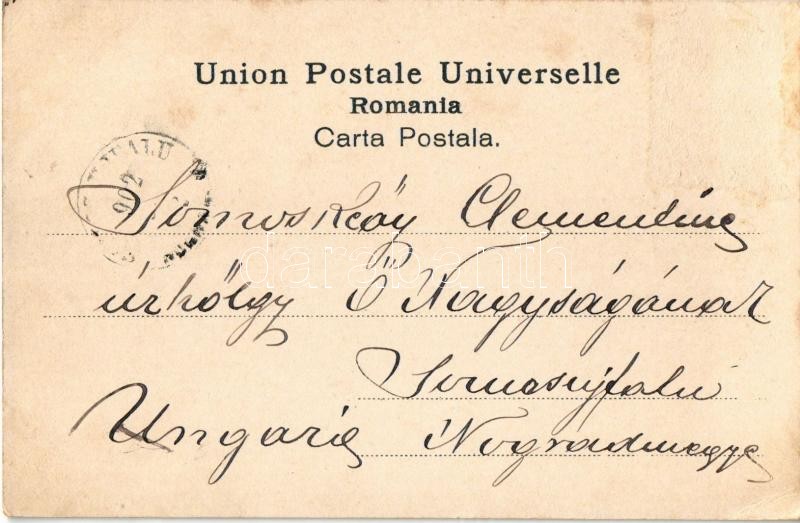 Union Postale Universelle
Romania
Carta Postala.
902
Somoskeőy Clementine
úrhölgy Ő Nagyságának
Somosújfalú
Ungarie Nográdmegye
darabanth